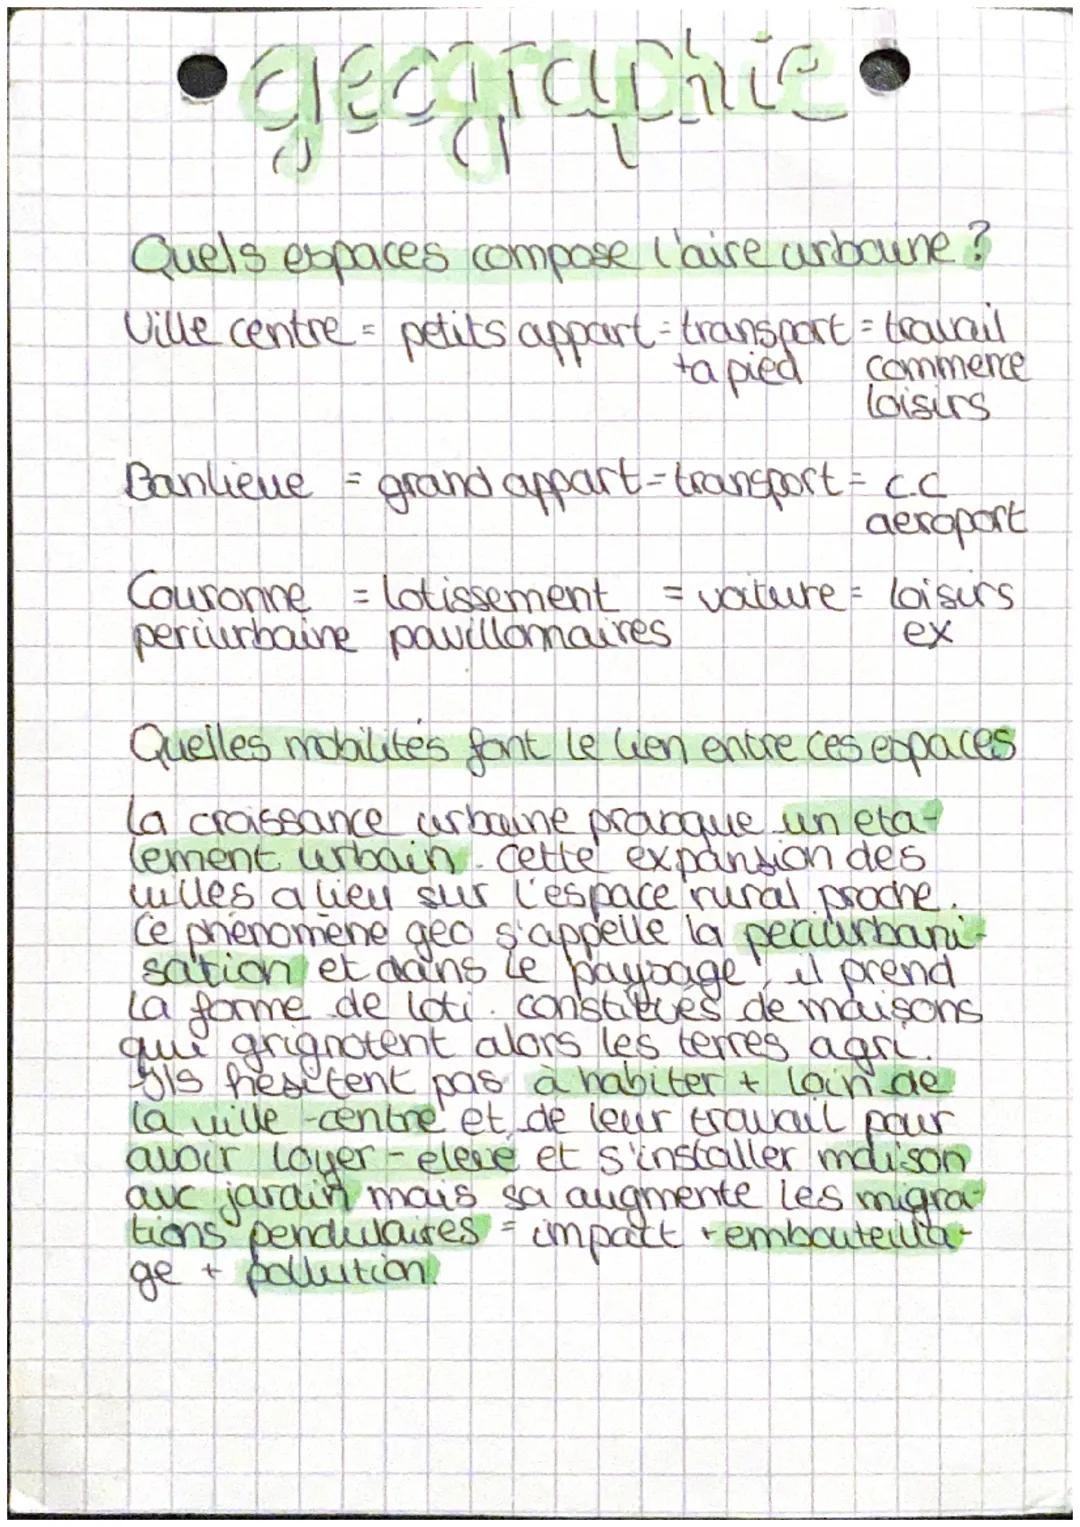 geographie
Quels espaces compose l'aire urbaine ?
Ville centre = petits appart = transport = travail
+a pied commerce
loisirs
Banlieue = grand appart = transport = c.c
aeroport
Couronne = lotissement = voiture = loisirs
periurbaine pavillonnaires ex
Quelles mobilités font le lien entre ces espaces
la croissance urbaine provoque un eta-
lement urbain. cette expansion des
villes a lieu sur l'espace rural proche.
Ce phénomène geo s'appelle la periurbani-
sation et dans le paysage, il prend
la forme de loti. constitués de maisons
qui grignotent alors les terres agri.
Ils hésitent pas à habiter + loin de
la ville-centre et de leur travail pour
avoir loyer - elevé et s'installer maison
avc jardin mais sa augmente les migra-
tions pendulaires = impact + embouteilla-
ge + pollution.